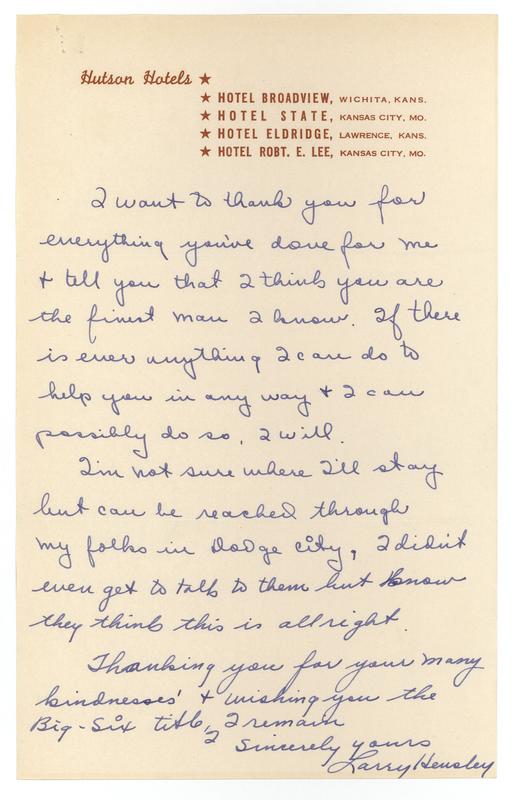 Hutson Hotels ★
★ HOTEL BROADVIEW, WICHITA, KANS.
★ HOTEL STATE, KANSAS CITY, MO.
★ HOTEL ELDRIDGE, LAWRENCE, KANS.
★ HOTEL ROBT. E. LEE, KANSAS CITY, MO.
I want to thank you for
everything you've done for me
+ tell you that I think you are
the finest man I know. If there
is ever anything I can do to
help you in any way + I can
possibly do so, I will.
I'm not sure where I'll stay
but can be reached through
my folks in Dodge city, I didn't
even get to talk to them but know
they think this is allright.
Thanking you for your many
kindnesses' + wishing you the
Big-Six title, I remain
Sincerely yours
Larry Hensley